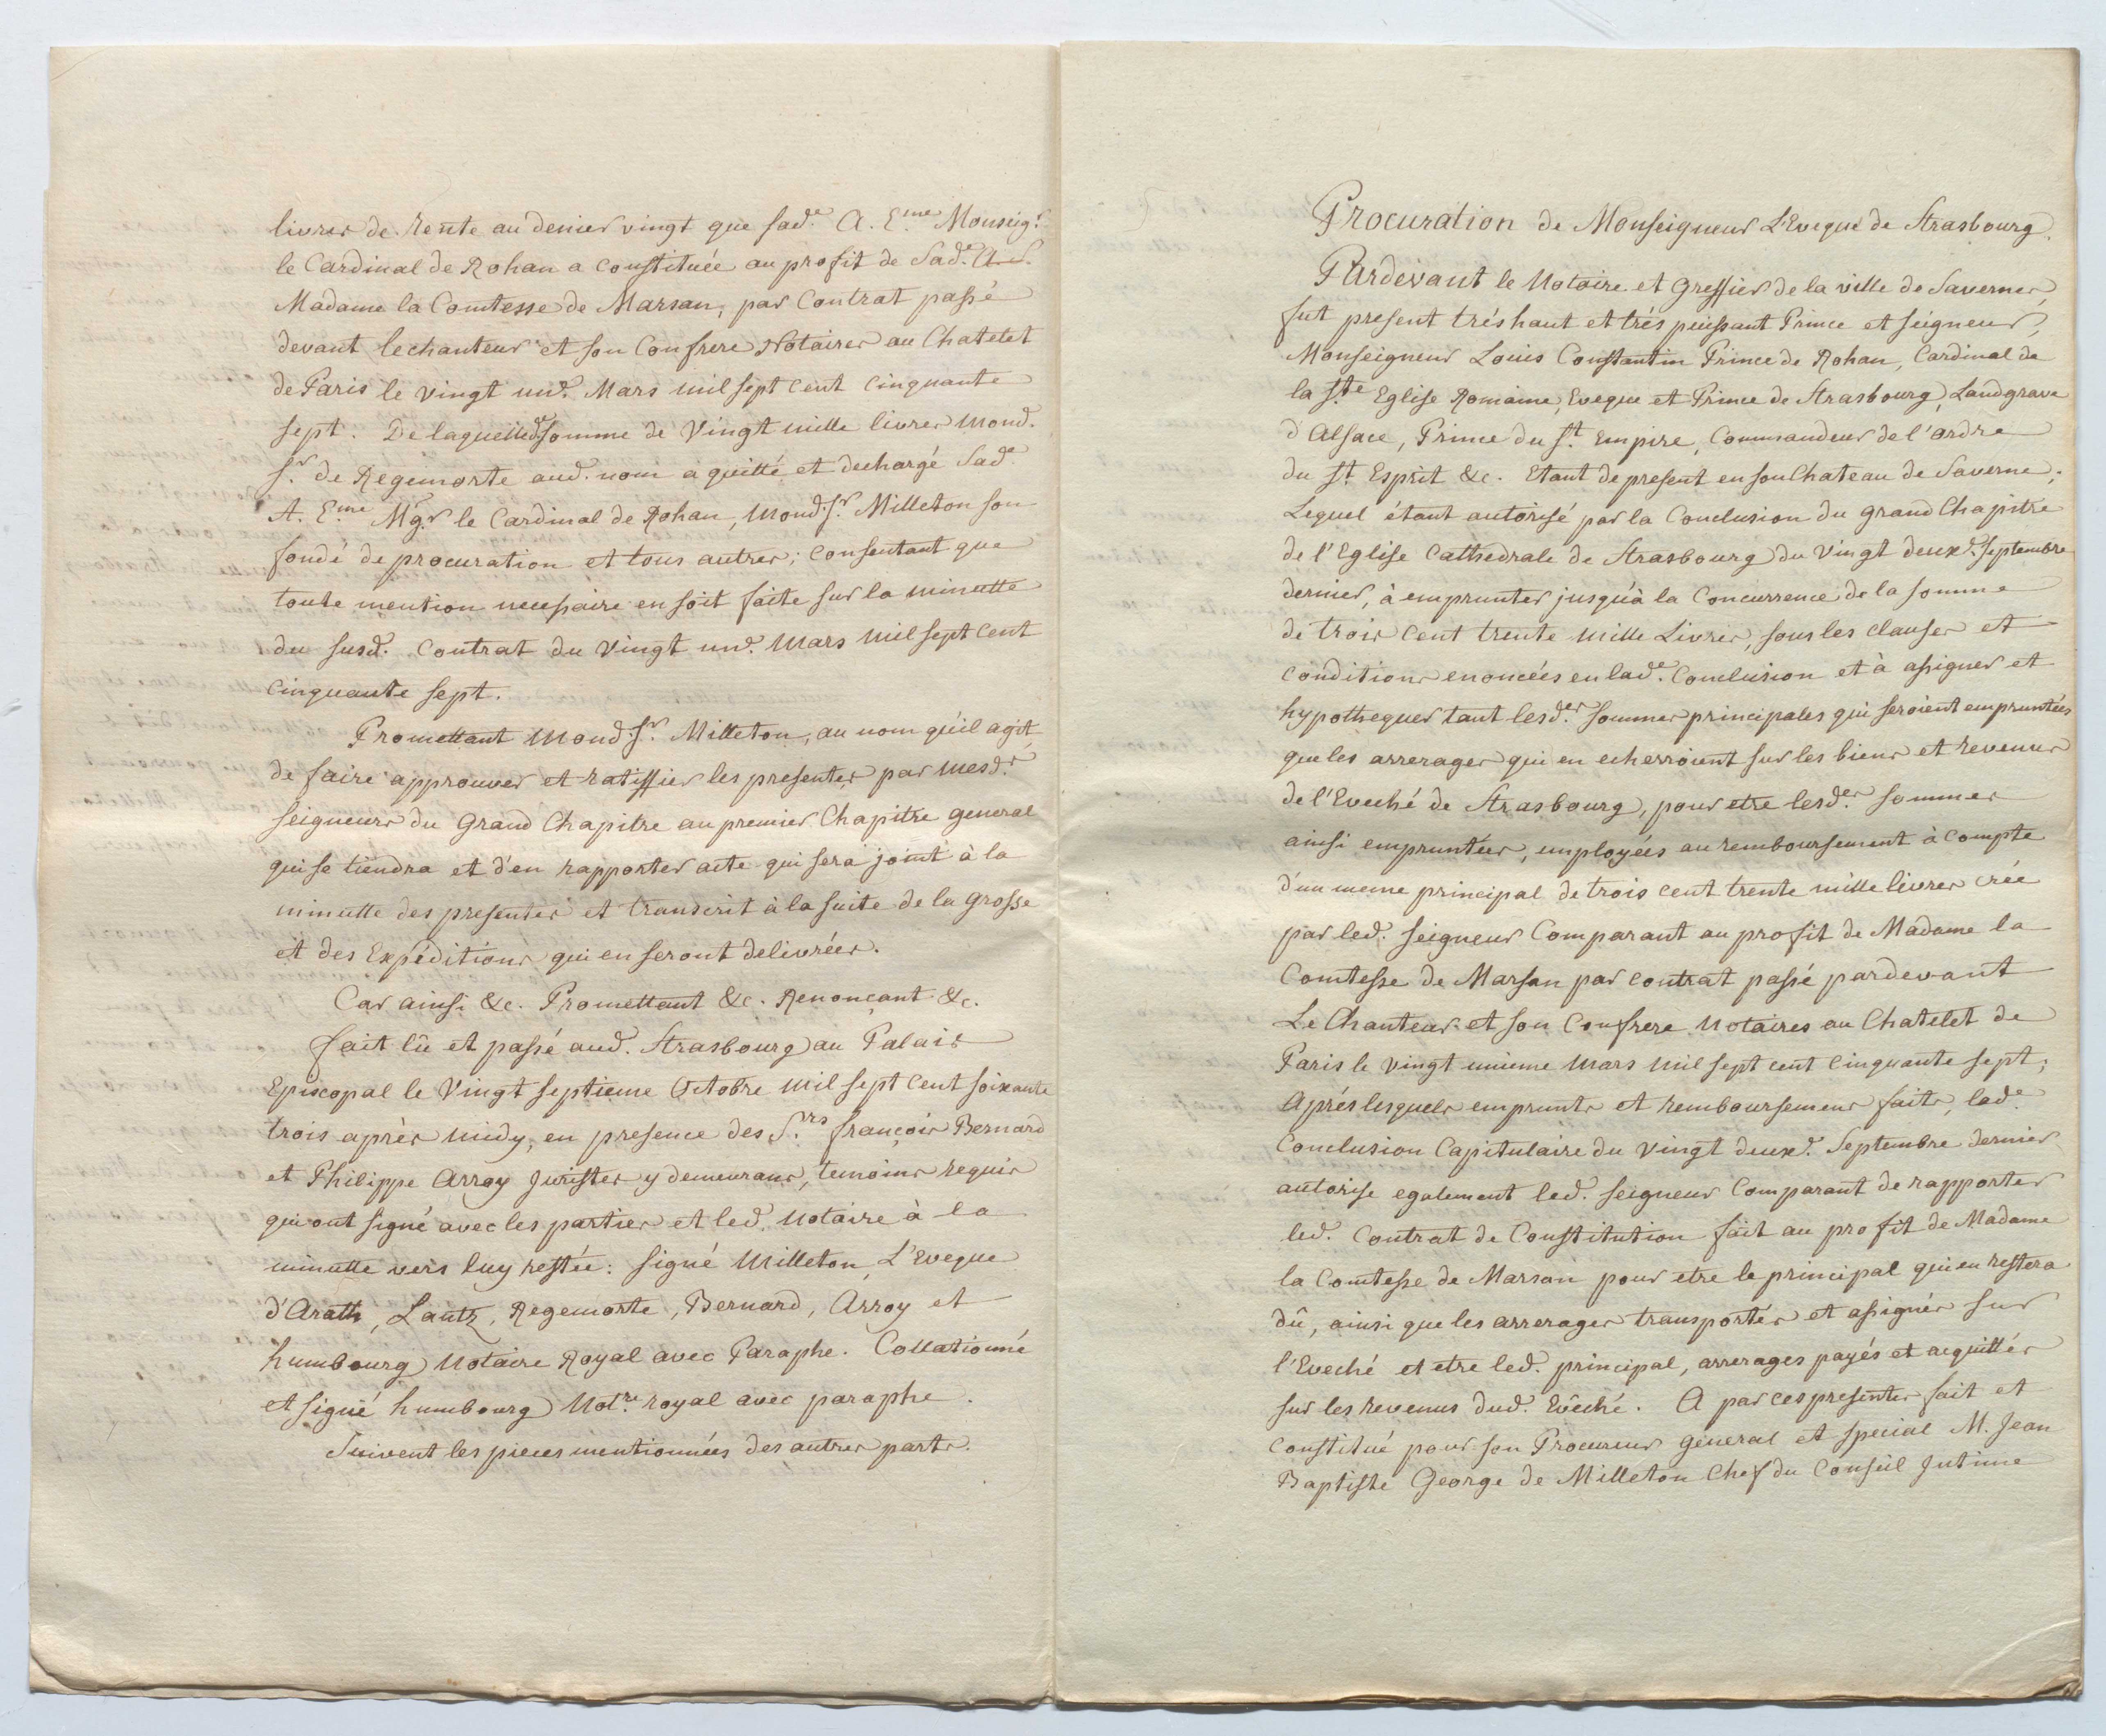 livres de Rente au denier vingt que sad.e A. E.me Monseig.r
le Cardinal de Rohan a constituée au profit de Sad.e A. S.
Madame la Comtesse de Marsan, par Contrat passé
devant lechanteur et son Confrere Notaires au Chatelet
de Paris le vingt un.e Mars mil sept cent cinquante
sept. De laquelled. somme de Vingt mille livres mond.
S.r de Regemorte aud. nom a quitté et dechargé Sad.e
A. E.me Mg.r le Cardinal de Rohan, mond. S.r Milleton son
fondé de procuration et tous autres; consentant que
toute mention necessaire en soit faite sur la minutte
du susd. Contrat du Vingt un.e Mars mil sept cent
cinquante sept.
Promettant mond. S.r Milleton, au nom qu'il agit,
de faire approuver et ratiffier les presentes par mesd.s
Seigneurs du Grand Chapitre au premier Chapitre general
qui se tiendra et d'en rapporter acte qui sera joint à la
minutte des presentes et transcrit à la suite de la grosse
et des Expéditions qui en seront delivrées.
Car ainsi &c. Promettant &c. Renonçant &c.
fait lû et passé aud. Strasbourg au Palais
Episcopal le Vingt septieme Octobre mil sept cent soixante
trois après midy, en presence des S.rs françois Bernard
et Philippe Arroy Juristes y demeurans, temoins requis
qui ont signé avec les parties et led. Notaire à la
minutte vers luy restée: signé Milleton, L'Eveque
d'Arath, Lantz, Regemorte, Bernard, Arroy et
humbourg Notaire Royal avec Paraphe. Collationné
et signé humbourg Not.re royal avec paraphe.
Suivent les pieces mentionnées des autres parts.
Procuration de Monseigneur L'Eveque de Strasbourg.
Pardevant le Notaire et Greffier de la ville de Saverne,
fut present trés haut et trés puissant Prince et seigneur,
Monseigneur Louis Constantin Prince de Rohan, Cardinal de
la S.te Eglise Romaine, Eveque et Prince de Strasbourg, Landgrave
d'Alsace, Prince du S.t Empire, Commandeur de l'ordre
du S.t Esprit &c. Etant de present en son Chateau de Saverne;
Lequel étant autorisé par la Conclusion du grand Chapitre
de l'Eglise Cathedrale de Strasbourg du Vingt deux.e Septembre
dernier, à emprunter jusqu'à la Concurrence de la somme
de trois cent trente mille Livres, sous les clauses et
conditions enoncées en lad.e Conclusion et à assigner et
hypothequer tant lesd.es sommes principales qui seroient empruntées
que les arrerages qui en echerroient sur les biens et revenus
de l'Eveché de Strasbourg, pour etre lesd.es sommes
ainsi empruntées, employées au remboursement à compte
d'un meme principal de trois cent trente mille livres crée
par led. seigneur Comparant au profit de Madame la
Comtesse de Marsan par contrat passé pardevant
Le Chanteur et son Confrere Notaires au Chatelet de
Paris le vingt unieme Mars mil sept cent cinquante sept;
Aprés lesquels emprunts et remboursemens faits, lad.e
Conclusion Capitulaire du Vingt deux.e Septembre dernier
autorise egalement led. seigneur Comparant de rapporter
led. Contrat de Constitution fait au profit de Madame
la Comtesse de Marsan pour etre le principal qui en restera
dû, ainsi que les arrerages transportés et assignés sur
l'Eveché et etre led. principal, arrerages payés et acquittés
sur les revenus dud. Evêché. A par ces presentes fait et
constitué pour son Procureur general et special M. Jean
Baptiste George de Milleton Chef du Conseil Intime